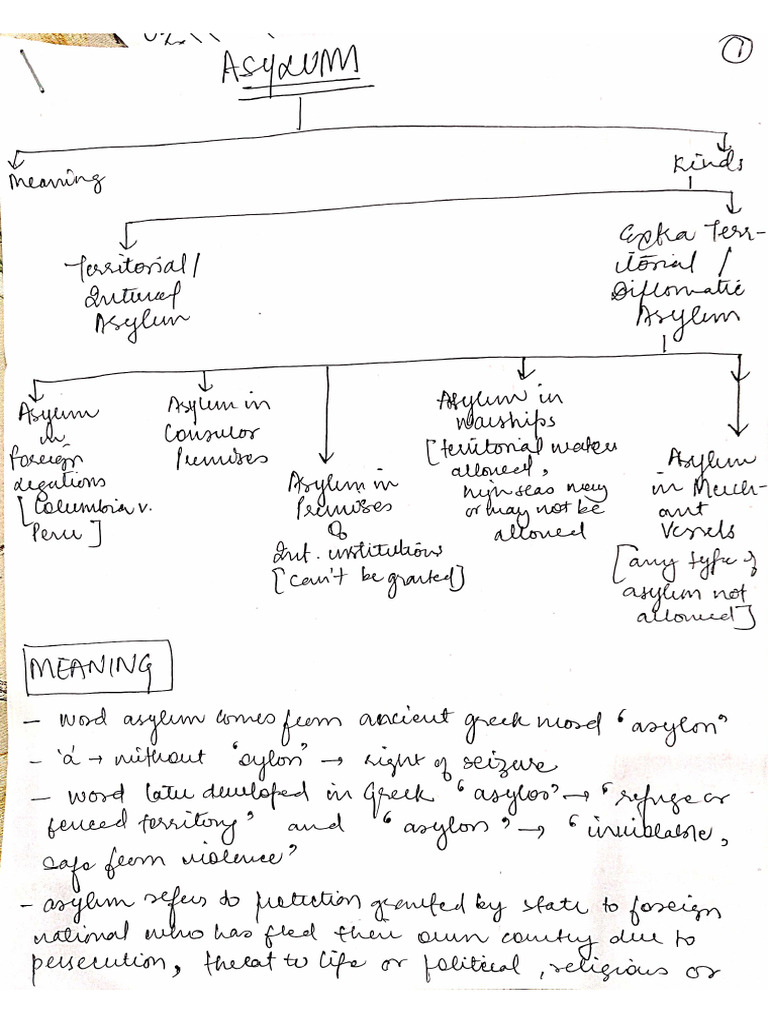 ①
ASYLUM
Meaning
Kinds
Territorial /
Internal
Asylum
Extra Terr-
itorial /
Diplomatic
Asylum
Asylum
in
foreign
legations
[Columbia v.
Peru]
Asylum in
Consular
Premises
Asylum in
Premises
of
Int. institutions
[can't be granted]
Asylum in
warships
[territorial waters
allowed,
high seas may
or may not be
allowed
Asylum
in Merch-
ant
Vessels
[any type of
asylum not
allowed]
MEANING
- word asylum comes from ancient greek word "asylon"
- 'a' → without "sylon" → right of seizure
- word later developed in Greek "asylos" → "refuge or
fenced territory" and "asylon" → "inviolable,
safe from violence"
- asylum refers to protection granted by state to foreign
national who has fled their own country due to
persecution, threat to life or political, religious or